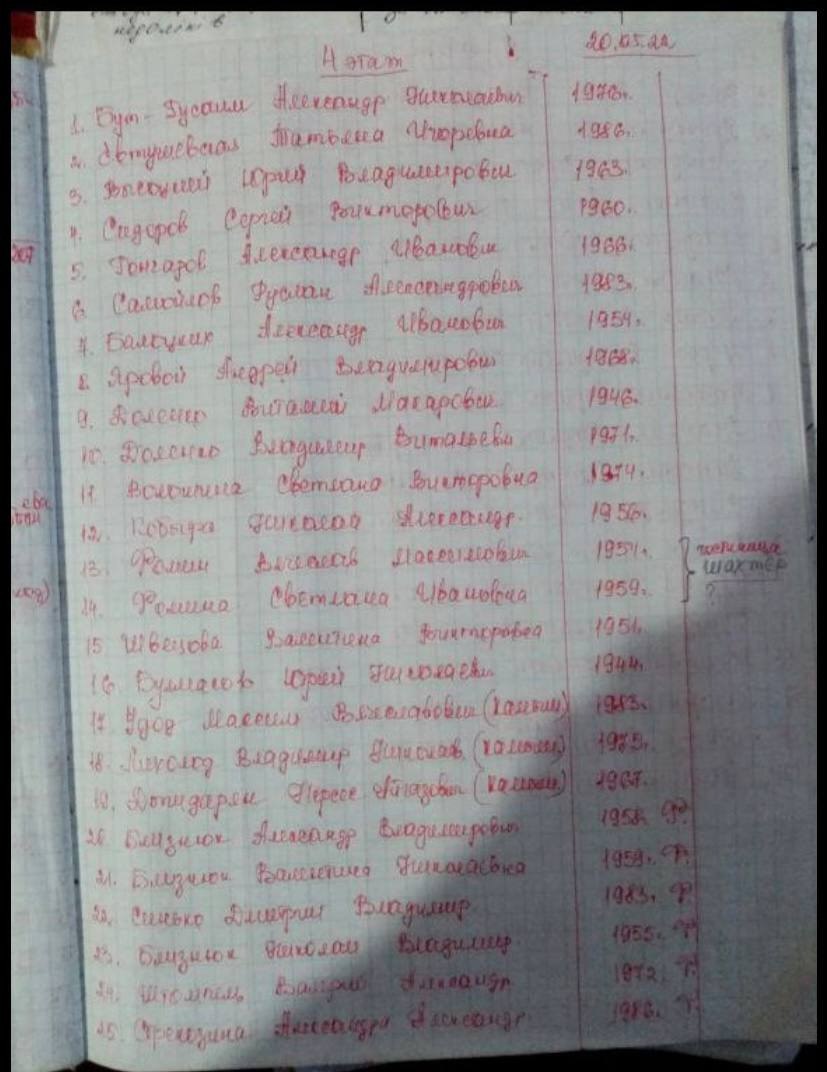 недопків
4 этап 20.05.22
1. Бут-Гусаим Александр Николаевич 1976г.
2. Евтушевская Татьяна Игоревна 1986г.
3. Высоцкий Юрий Владимирович 1963.
4. Сидоров Сергей Викторович 1960г.
5. Гончаров Александр Иванович 1966г.
6. Самойлов Руслан Александрович 1983г.
7. Александр Иванович 1954г.
8. Яровой Андрей Владимирович 1968г.
9. Доленко Виталий Макарович 1946г.
10. Доленко Владимир Витальевич 1971г.
11. Волошина Светлана Викторовна 1974г.
12. Кобыра Николай Александр. 1956г.
13. Фомин Вячеслав Максимович 1951г. шахтер
14. Фомина Светлана Ивановна 1959г. ?
15. Швецова Валентина Викторовна 1951г.
16. Булмасов Юрий Николаевич 1944г.
17. Удод Максим Вячеславович 1983г.
18. Владимир Николаев. 1975г.
19. 1967г.
20. Близнюк Александр Владимирович 1958г. Р.
21. Близнюк Валентина Николаевна 1959г. Р.
22. Синько Дмитрий Владимир. 1983г. Р.
23. Близнюк Николай Владимир. 1955г. Р.
24. Штомпель Валерий Александр. 1972г. Р.
25. Стрекозина Александра Александр. 1986г. Р.